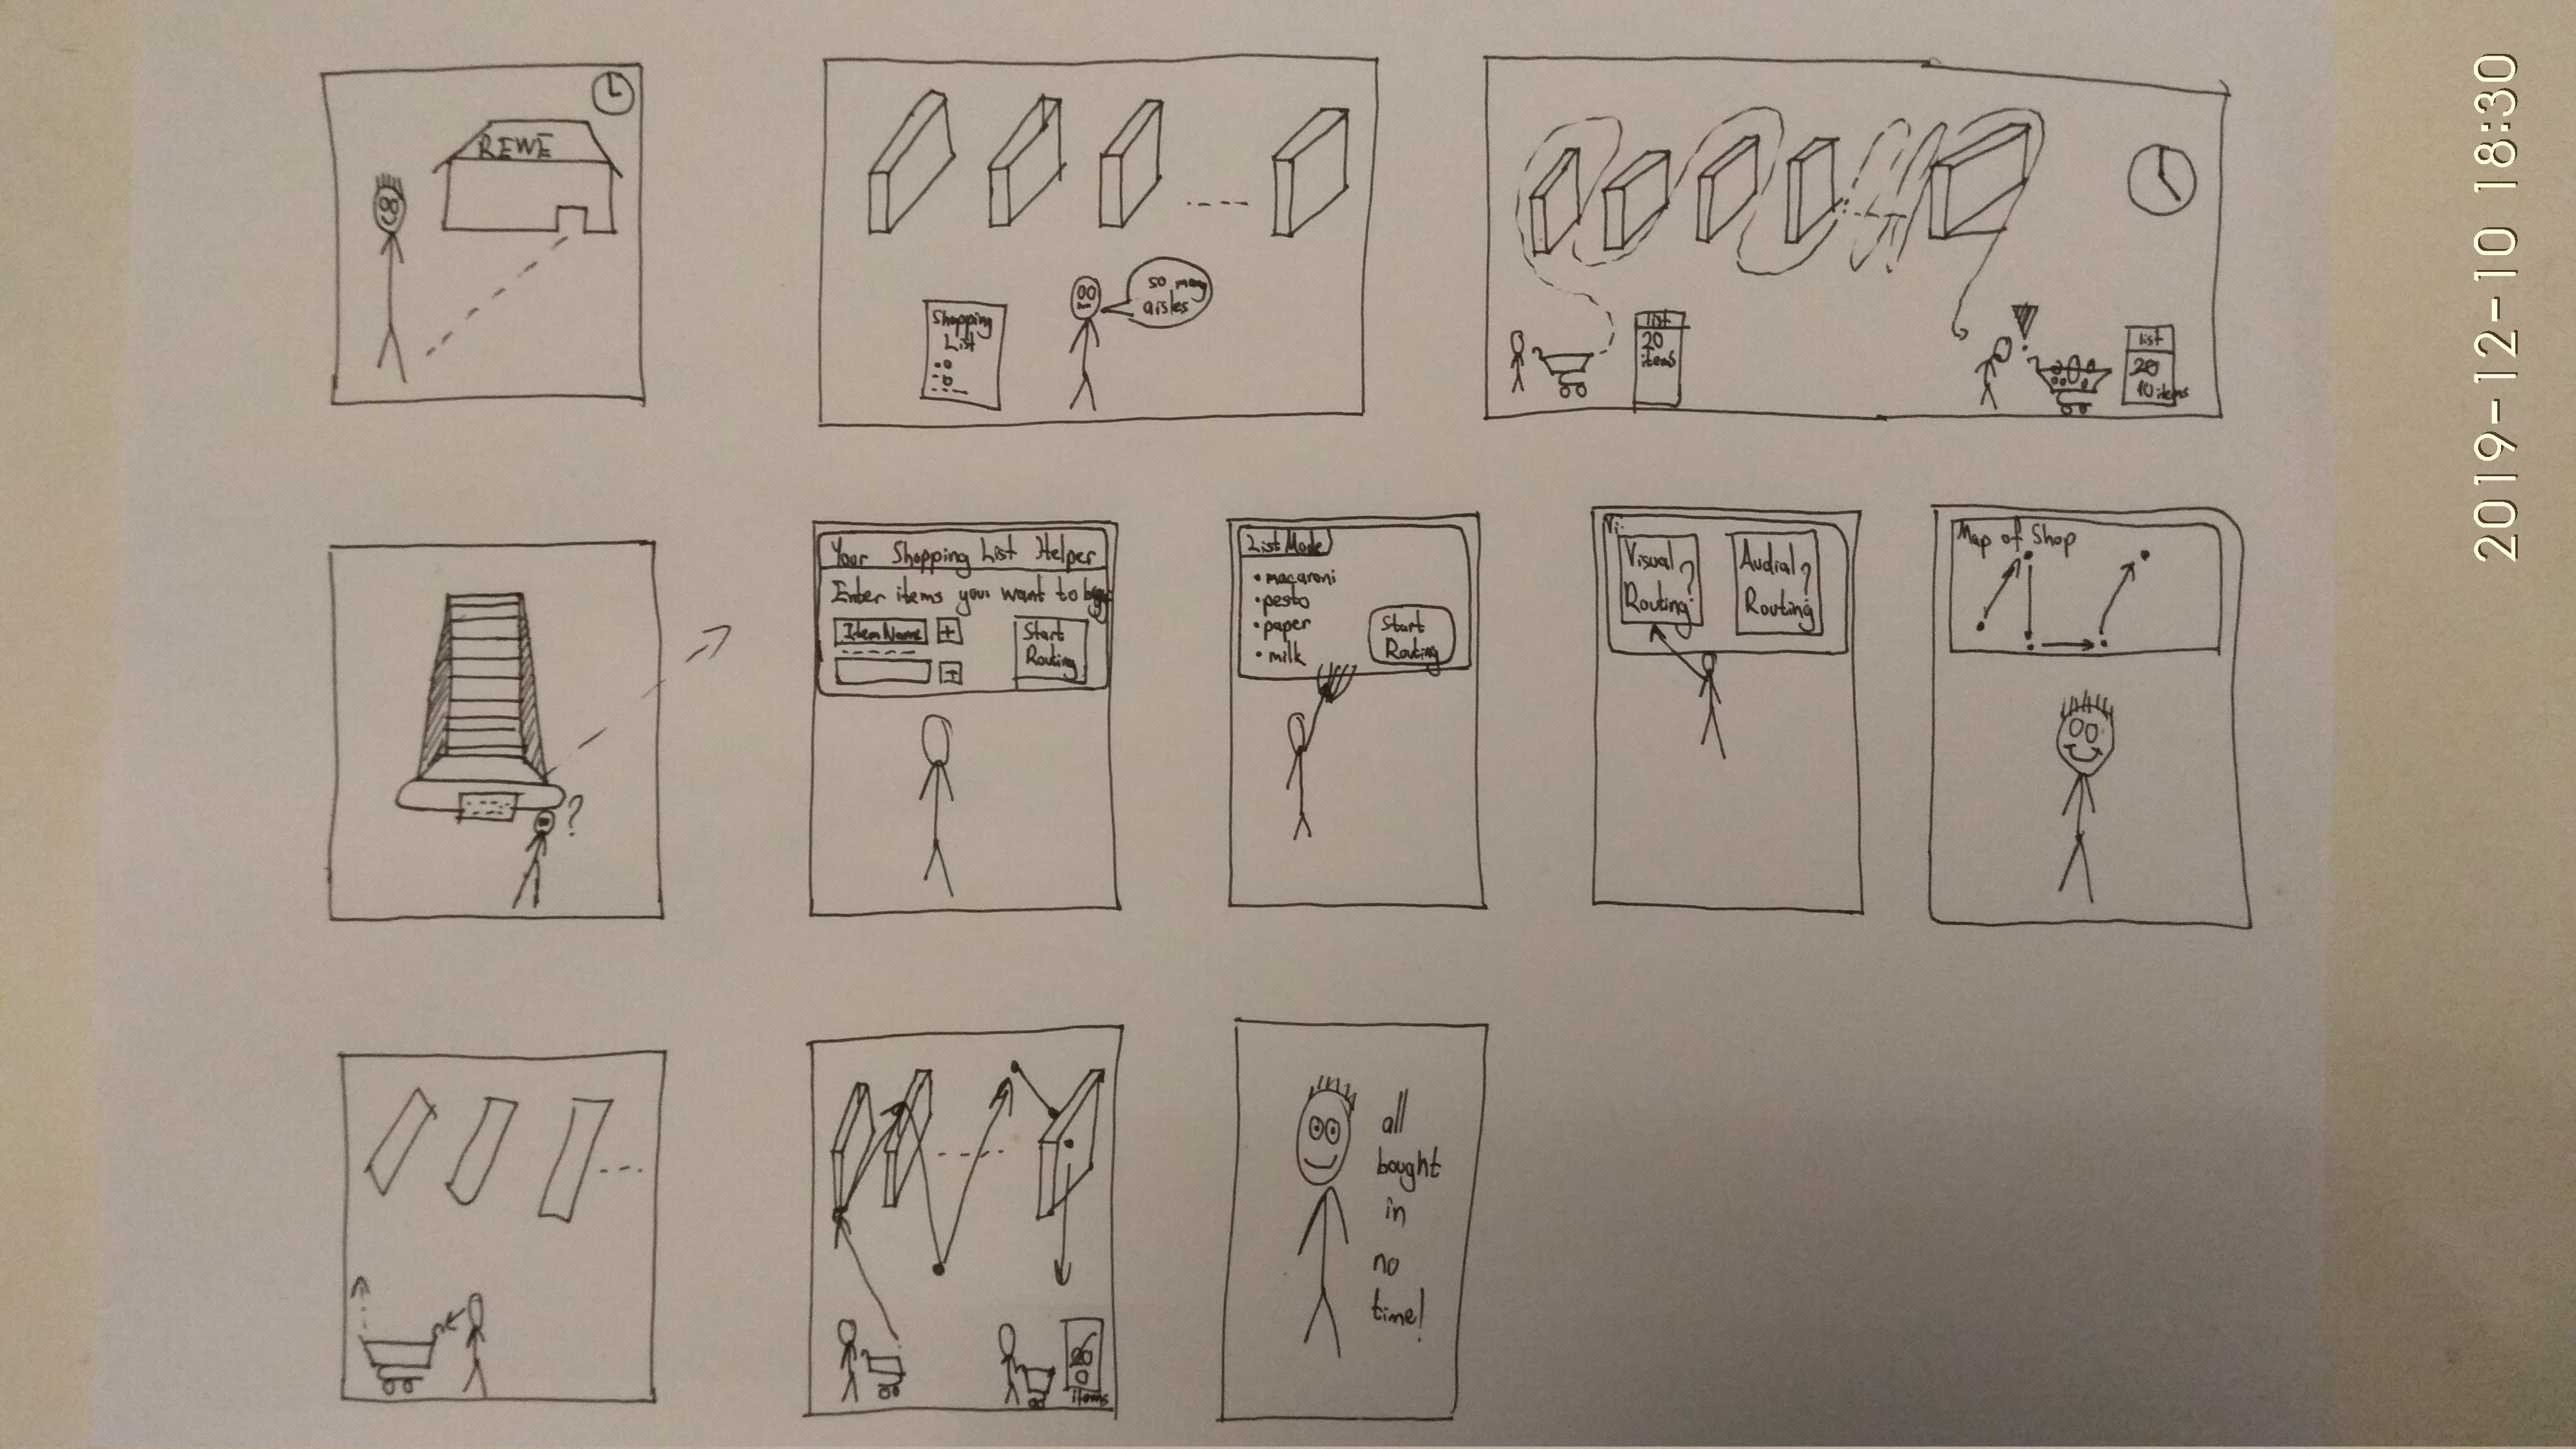 REWE
Shopping
List
so many
aisles
list
20
items
list
20
10 items
?
Your Shopping List Helper
Enter items you want to buy
Item Name +
+
Start
Routing
List Mode
• macaroni
• pesto
• paper
• milk
Start
Routing
Vi
Visual
Routing?
Audial
Routing?
Map of Shop
20
0
items
all
bought
in
no
time!
2019-12-10 18:30